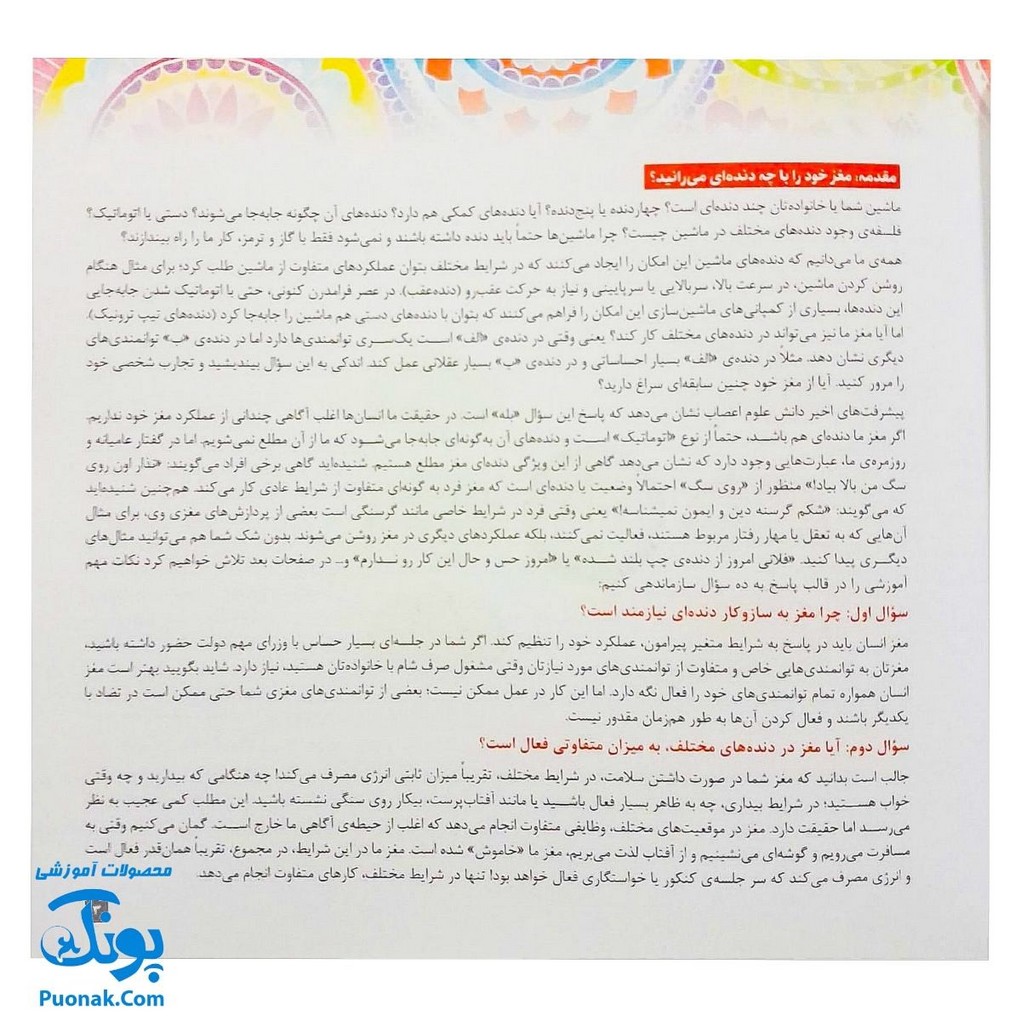 مقدمه: مغز خود را با چه دنده‌ای می‌رانید؟
ماشین شما یا خانواده‌تان چند دنده‌ای است؟ چهاردنده یا پنج‌دنده؟ آیا دنده‌های کمکی هم دارد؟ دنده‌های آن چگونه جابه‌جا می‌شوند؟ دستی یا اتوماتیک؟
فلسفه‌ی وجود دنده‌های مختلف در ماشین چیست؟ چرا ماشین‌ها حتماً باید دنده داشته باشند و نمی‌شود فقط با گاز و ترمز، کار ما را راه بیندازند؟
همه‌ی ما می‌دانیم که دنده‌های ماشین این امکان را ایجاد می‌کنند که در شرایط مختلف بتوان عملکردهای متفاوت از ماشین طلب کرد؛ برای مثال هنگام
روشن کردن ماشین، در سرعت بالا، سربالایی یا سرپایینی و نیاز به حرکت عقب‌رو (دنده‌عقب). در عصر فرامدرن کنونی، حتی با اتوماتیک شدن جابه‌جایی
این دنده‌ها، بسیاری از کمپانی‌های ماشین‌سازی این امکان را فراهم می‌کنند که بتوان با دنده‌های دستی هم ماشین را جابه‌جا کرد (دنده‌های تیپ ترونیک).
اما آیا مغز ما نیز می‌تواند در دنده‌های مختلف کار کند؟ یعنی وقتی در دنده‌ی «الف» است یک‌سری توانمندی‌ها دارد اما در دنده‌ی «ب» توانمندی‌های
دیگری نشان دهد. مثلاً در دنده‌ی «الف» بسیار احساساتی و در دنده‌ی «ب» بسیار عقلانی عمل کند. اندکی به این سؤال بیندیشید و تجارب شخصی خود
را مرور کنید. آیا از مغز خود چنین سابقه‌ای سراغ دارید؟
پیشرفت‌های اخیر دانش علوم اعصاب نشان می‌دهد که پاسخ این سؤال «بله» است. در حقیقت ما انسان‌ها اغلب آگاهی چندانی از عملکرد مغز خود نداریم.
اگر مغز ما دنده‌ای هم باشد، حتماً از نوع «اتوماتیک» است و دنده‌های آن به‌گونه‌ای جابه‌جا می‌شود که ما از آن مطلع نمی‌شویم. اما در گفتار عامیانه و
روزمره‌ی ما، عبارت‌هایی وجود دارد که نشان می‌دهد گاهی از این ویژگی دنده‌ای مغز مطلع هستیم. شنیده‌اید گاهی برخی افراد می‌گویند: «نذار اون روی
سگ من بالا بیاد!» منظور از «روی سگ» احتمالاً وضعیت یا دنده‌ای است که مغز فرد به گونه‌ای متفاوت از شرایط عادی کار می‌کند. هم‌چنین شنیده‌اید
که می‌گویند: «شکم گرسنه دین و ایمون نمیشناسه!» یعنی وقتی فرد در شرایط خاصی مانند گرسنگی است بعضی از پردازش‌های مغزی وی، برای مثال
آن‌هایی که به تعقل یا مهار رفتار مربوط هستند، فعالیت نمی‌کنند، بلکه عملکردهای دیگری در مغز روشن می‌شوند. بدون شک شما هم می‌توانید مثال‌های
دیگری پیدا کنید. «فلانی امروز از دنده‌ی چپ بلند شده» یا «امروز حس و حال این کار رو ندارم» و... در صفحات بعد تلاش خواهیم کرد نکات مهم
آموزشی را در قالب پاسخ به ده سؤال سازماندهی کنیم:
سؤال اول: چرا مغز به سازوکار دنده‌ای نیازمند است؟
مغز انسان باید در پاسخ به شرایط متغیر پیرامون، عملکرد خود را تنظیم کند. اگر شما در جلسه‌ای بسیار حساس با وزرای مهم دولت حضور داشته باشید،
مغزتان به توانمندی‌هایی خاص و متفاوت از توانمندی‌های مورد نیازتان وقتی مشغول صرف شام با خانواده‌تان هستید، نیاز دارد. شاید بگویید بهتر است مغز
انسان همواره تمام توانمندی‌های خود را فعال نگه دارد. اما این کار در عمل ممکن نیست؛ بعضی از توانمندی‌های مغزی شما حتی ممکن است در تضاد با
یکدیگر باشند و فعال کردن آن‌ها به طور هم‌زمان مقدور نیست.
سؤال دوم: آیا مغز در دنده‌های مختلف، به میزان متفاوتی فعال است؟
جالب است بدانید که مغز شما در صورت داشتن سلامت، در شرایط مختلف، تقریباً میزان ثابتی انرژی مصرف می‌کند! چه هنگامی که بیدارید و چه وقتی
خواب هستید؛ در شرایط بیداری، چه به ظاهر بسیار فعال باشید یا مانند آفتاب‌پرست، بیکار روی سنگی نشسته باشید. این مطلب کمی عجیب به نظر
می‌رسد اما حقیقت دارد. مغز در موقعیت‌های مختلف، وظایفی متفاوت انجام می‌دهد که اغلب از حیطه‌ی آگاهی ما خارج است. گمان می‌کنیم وقتی به
مسافرت می‌رویم و گوشه‌ای می‌نشینیم و از آفتاب لذت می‌بریم، مغز ما «خاموش» شده است. مغز ما در این شرایط، در مجموع، تقریباً همان‌قدر فعال است
و انرژی مصرف می‌کند که سر جلسه‌ی کنکور یا خواستگاری فعال خواهد بود! تنها در شرایط مختلف، کارهای متفاوت انجام می‌دهد.
محصولات آموزشی
پونک
Puonak.Com